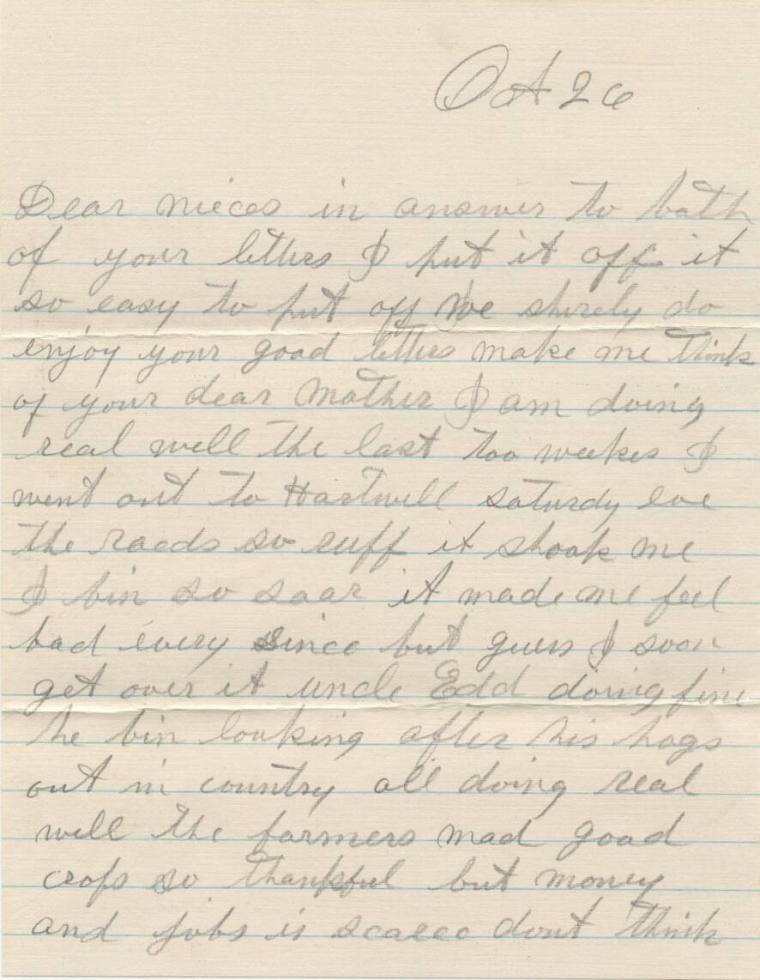 Oct 26
Dear nieces in answer to both
of your letters I put it off it
so easy to put off We shurely do
enjoy your good letters make me think
of your dear Mother I am doing
real well the last too weekes I
went out to Hartwell saturdy eve
the roads so ruff it shook me
I bin so soar it made me feel
bad every since but guess I soon
get over it uncle Edd doing fine
he bin looking after his hogs
out in country all doing real
well the farmers mad good
crops so thankful but money
and jobs is scarce dont think